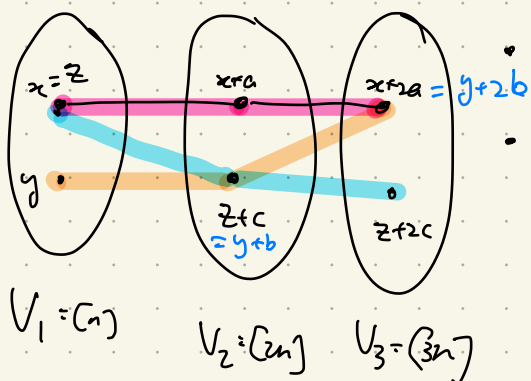 x = z
x+a
x+2a = y+2b
y
z+c
= y+b
z+2c
V₁ = [n]
V₂ = [2n]
V₃ = [3n]